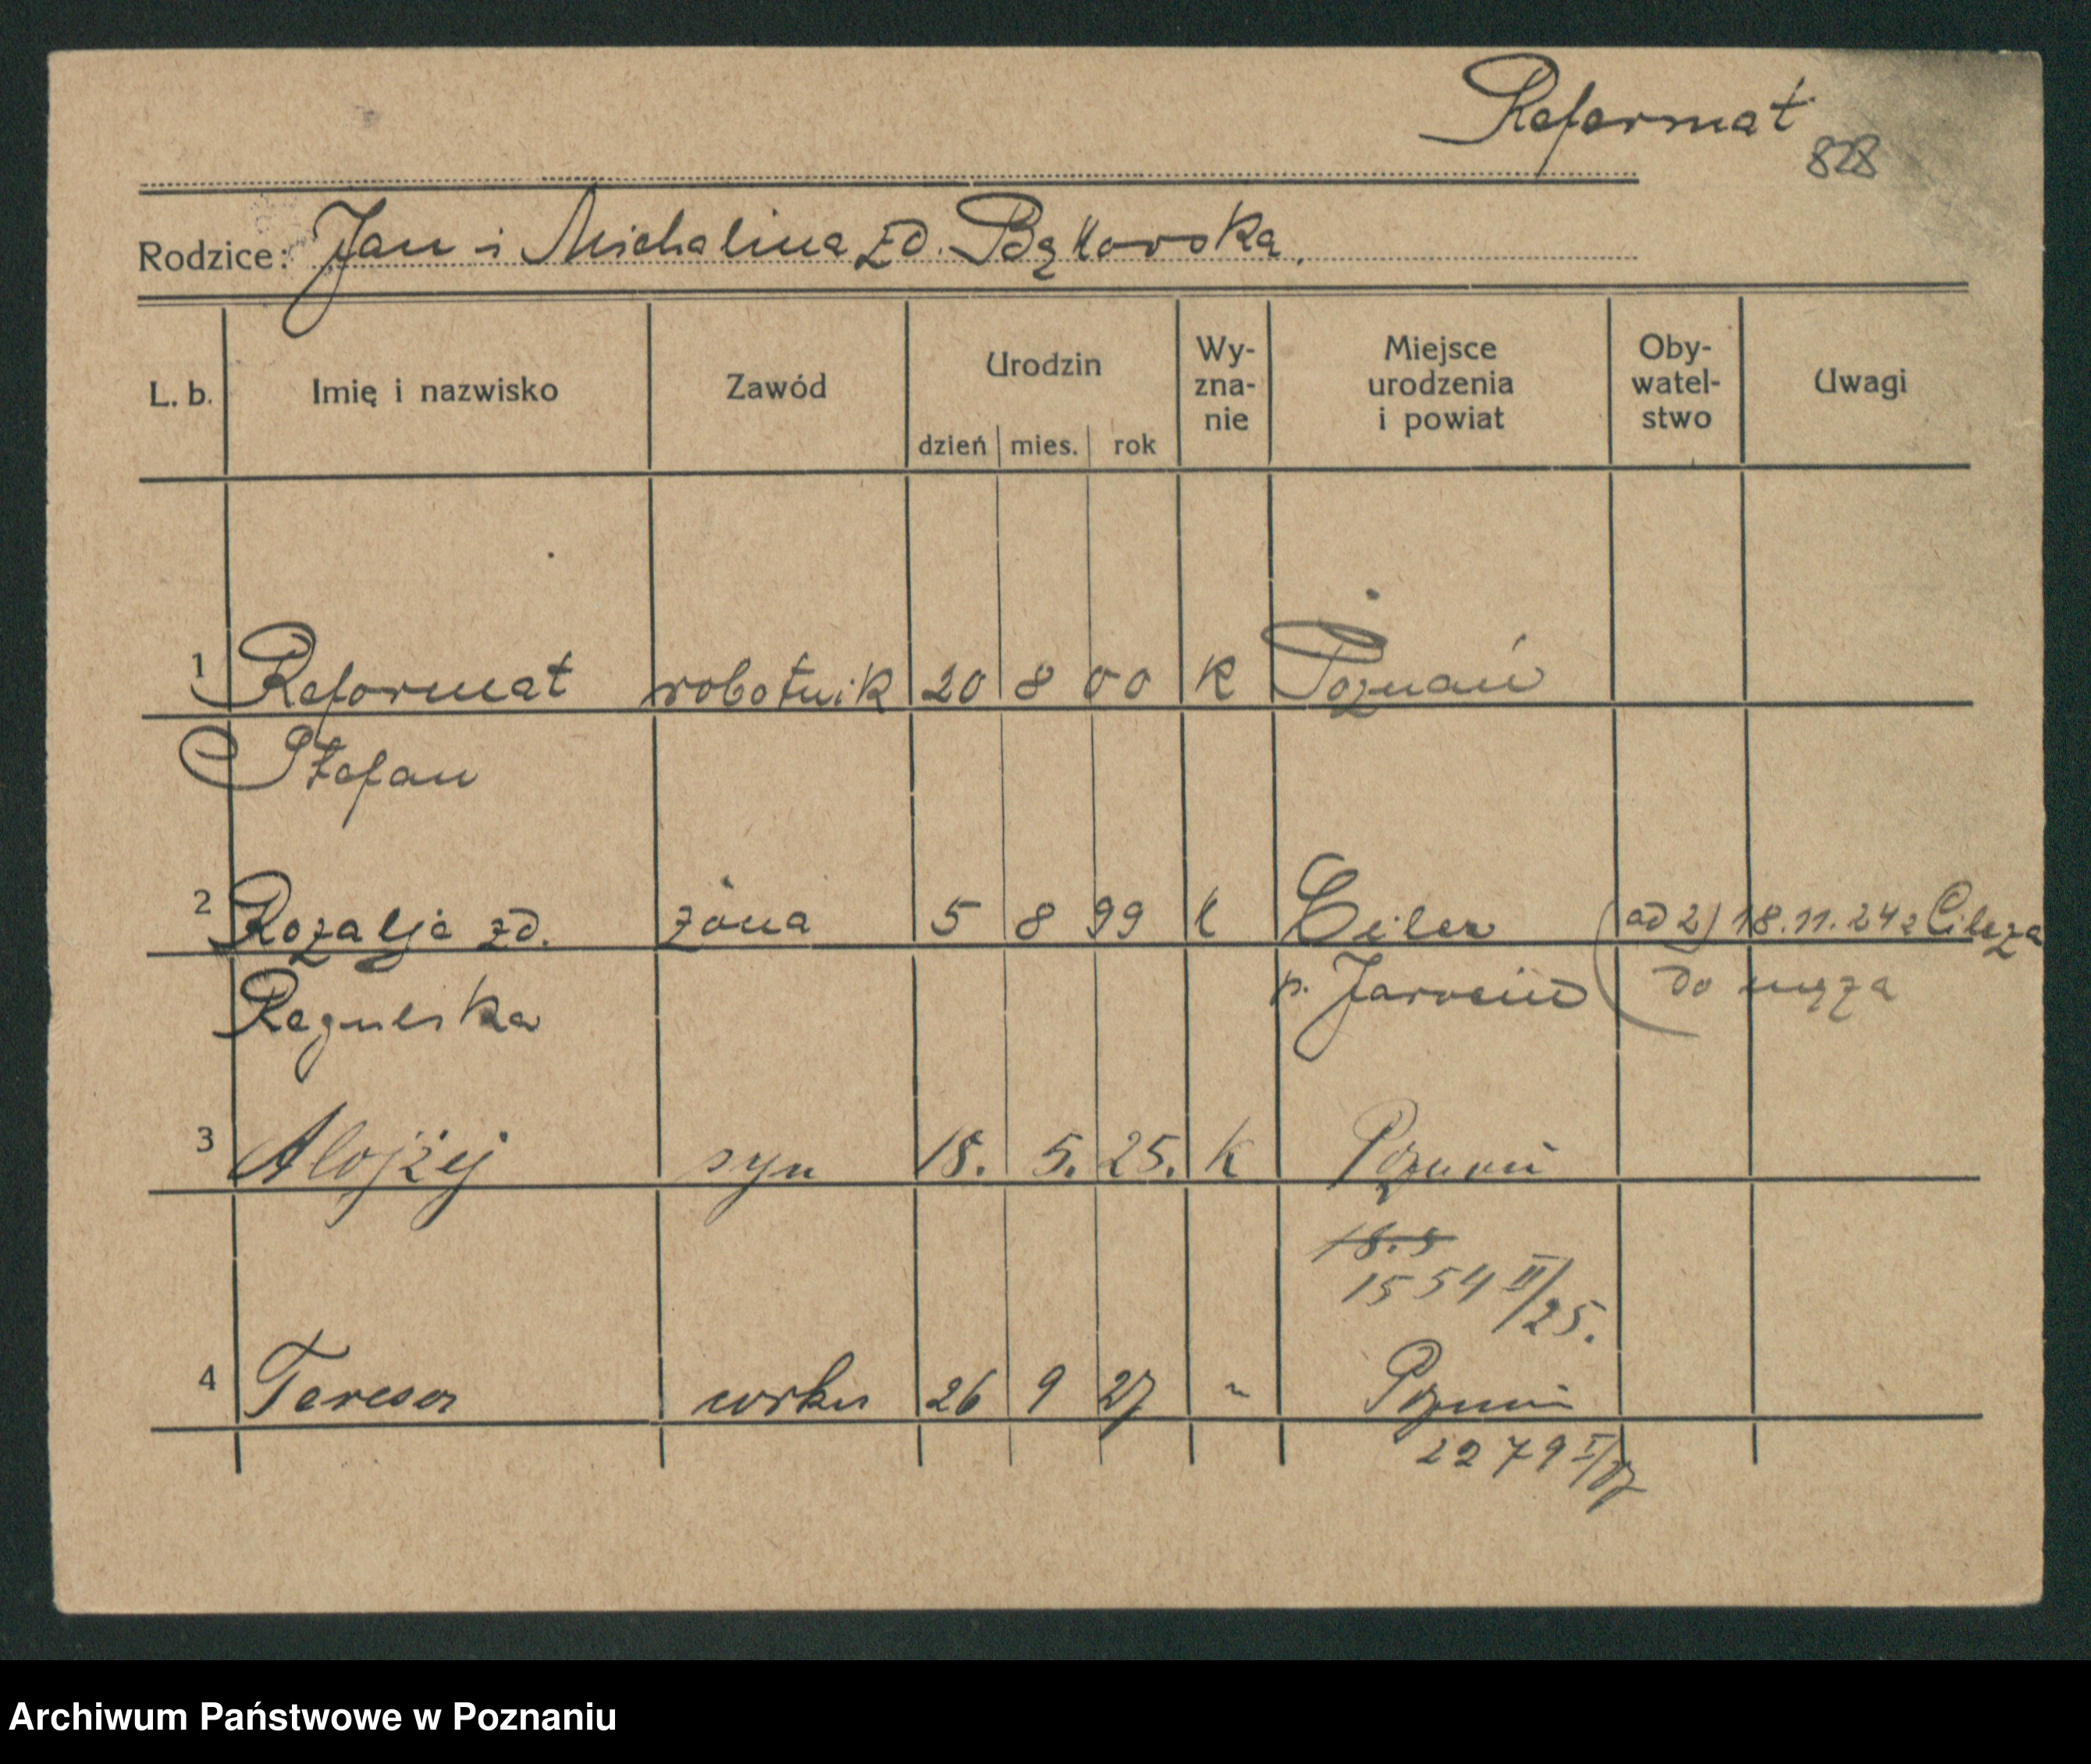 Reformat
828
Rodzice: Jan i Michalina zd. Bąkowska.
L. b. Imię i nazwisko Zawód Urodzin dzień mies. rok Wy-zna-nie Miejsce urodzenia i powiat Oby-watel-stwo Uwagi
1 Reformat robotnik 20 8 00 K Poznań
Stefan
2 Rozalja zd. żona 5 8 99 k (ad 2) 18.11.24 z Cilcza
Regulska p. Jarocin do męża
3 Alojzej syn 18. 5. 25. K Poznań
18.5
1554 II/25.
4 Teresa corka 26 9 27 " Poznań
2279 I/27
Archiwum Państwowe w Poznaniu